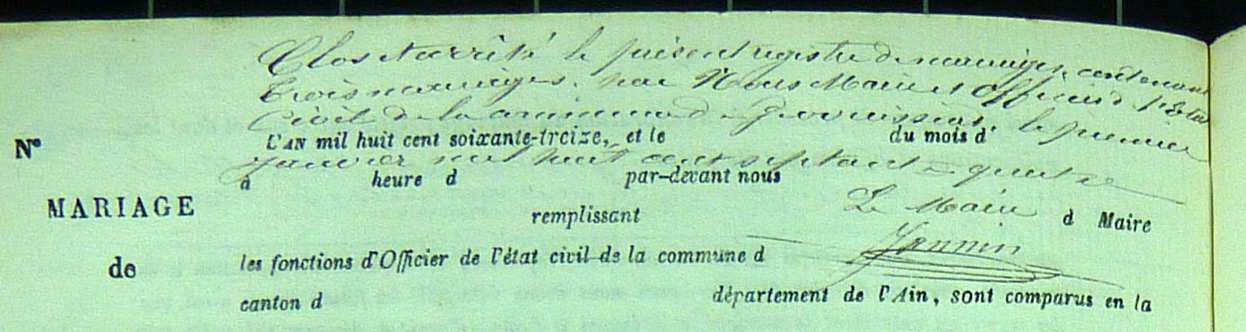 Clos et arrêté le présent registre de mariages, contenant
trois mariages, par Nous Maire et Officier de l'Etat
Civil de la commune de le premier
N° L'AN mil huit cent soixante-treize, et le du mois d'
janvier mil huit cent septante quatre
à heure d par-devant nous
MARIAGE Le Maire
remplissant d Maire
Jannin
de les fonctions d'Officier de l'état civil de la commune d
canton d département de l'Ain, sont comparus en la